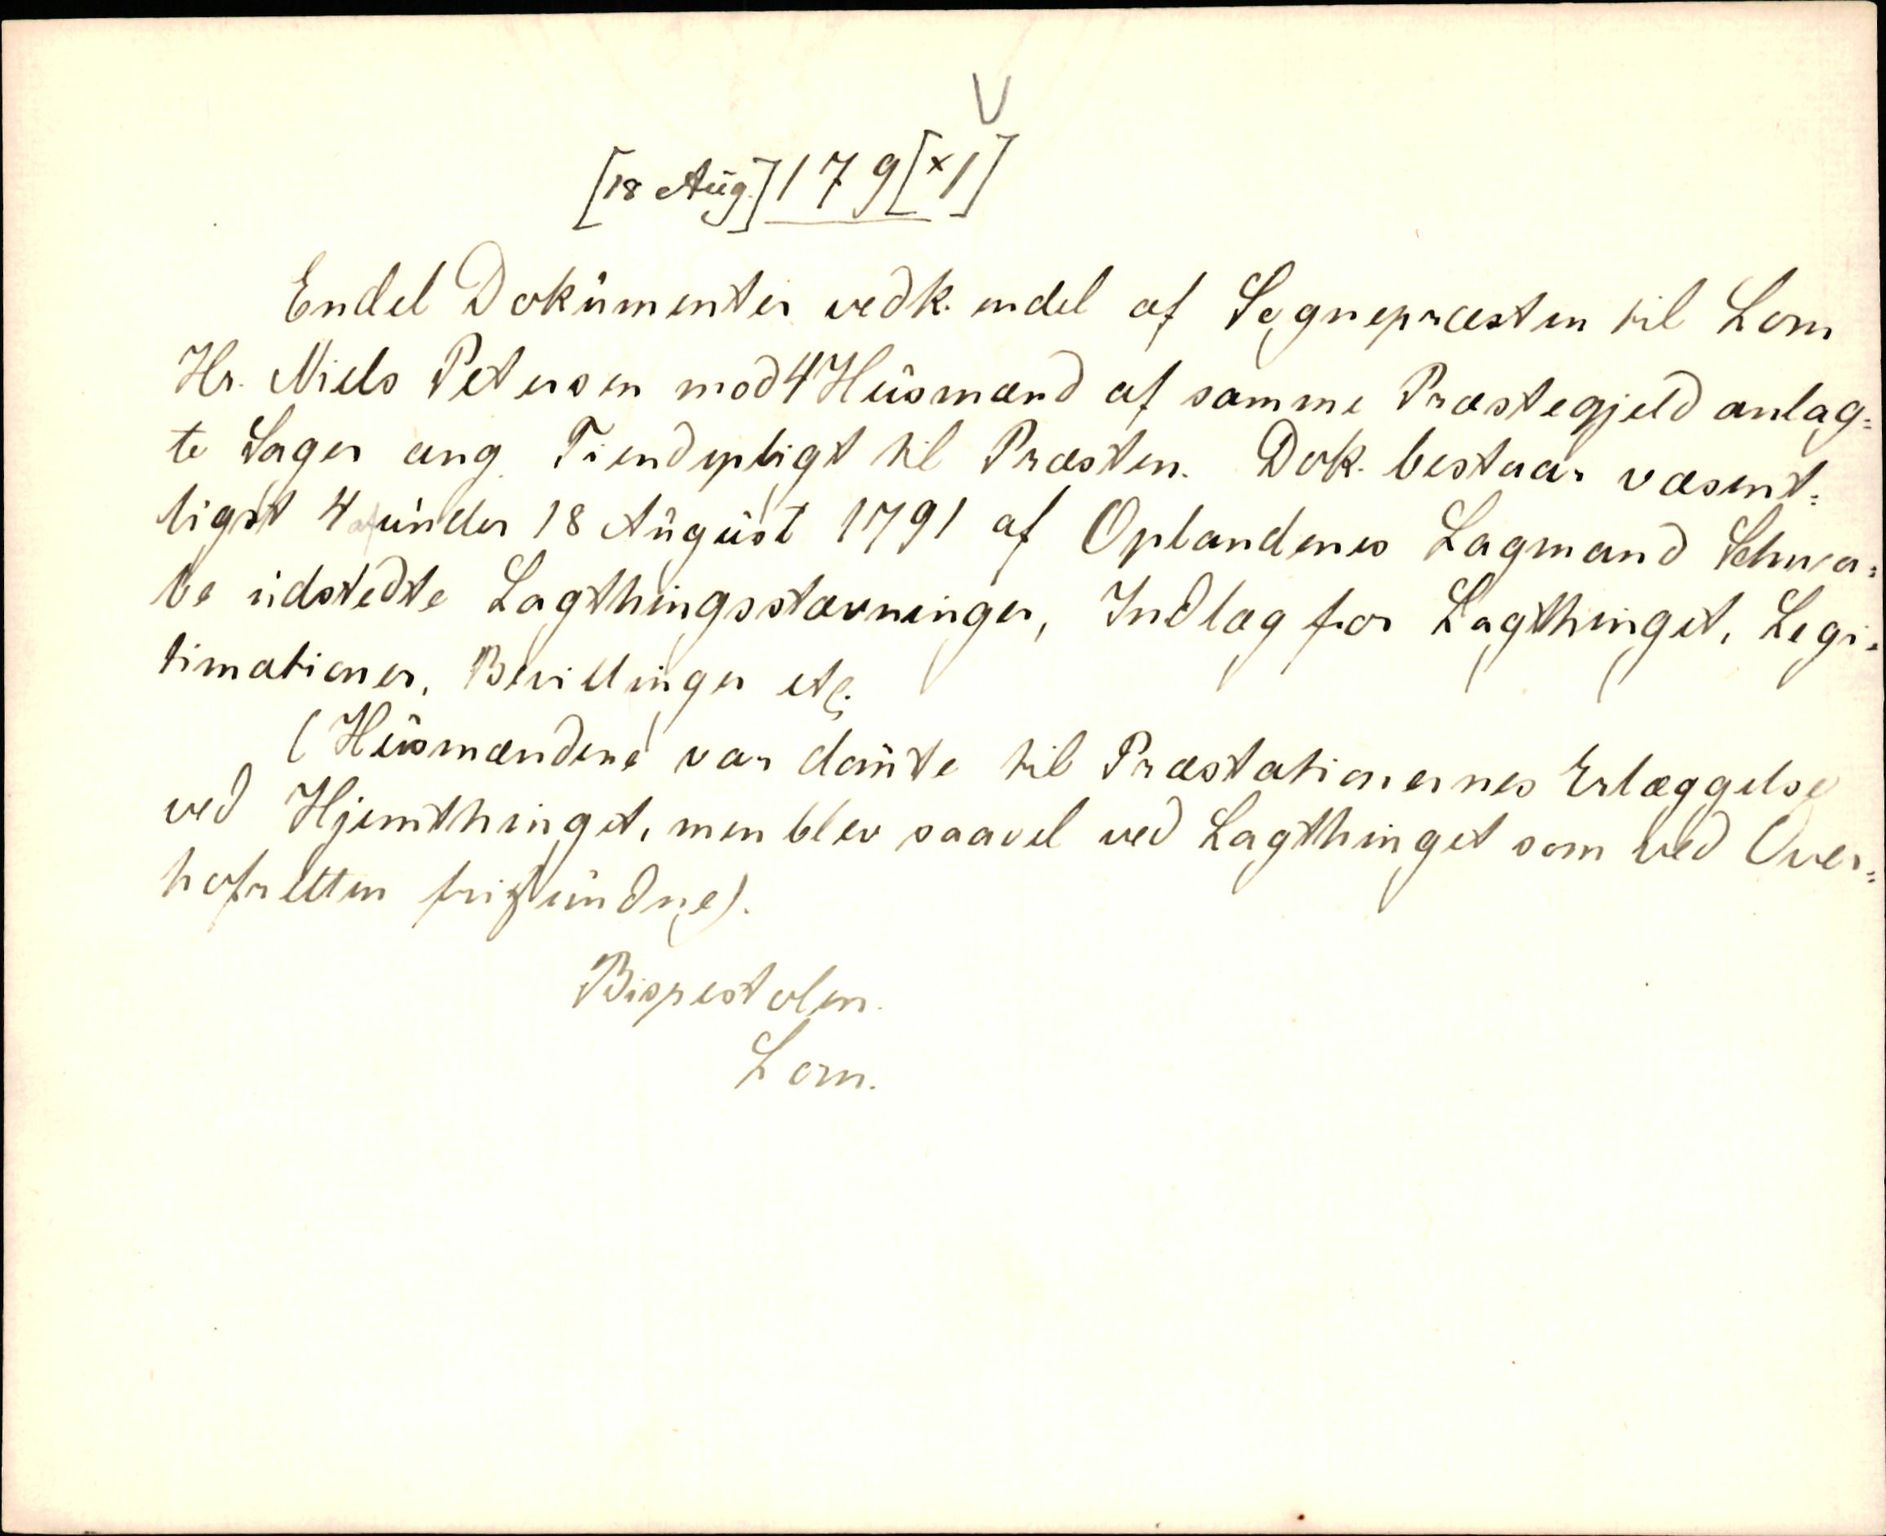 V
[18 Aug.] 179[×1]
Endel Dokumenter vedk. endel af Sognepræsten til Lom
Hr. Niels Petersen mod 4 Husmænd af samme Præstegjeld anlag=
te Sager ang. Tiendepligt til Præsten. Dok. bestaar væsent=
ligst 4 af under 18 August 1791 af Oplandenes Lagmand Schwa=
be udstedte Lagthingsstævninger, Indlæg for Lagthinget, Legi=
timationer, Bevillinger etc.
(Husmændene var dømte til Præstationernes Erlæggelse
ved Hjemthinget, men blev saavel ved Lagthinget som ved Over=
hofretten frifundne).
Bispestolen.
Lom.